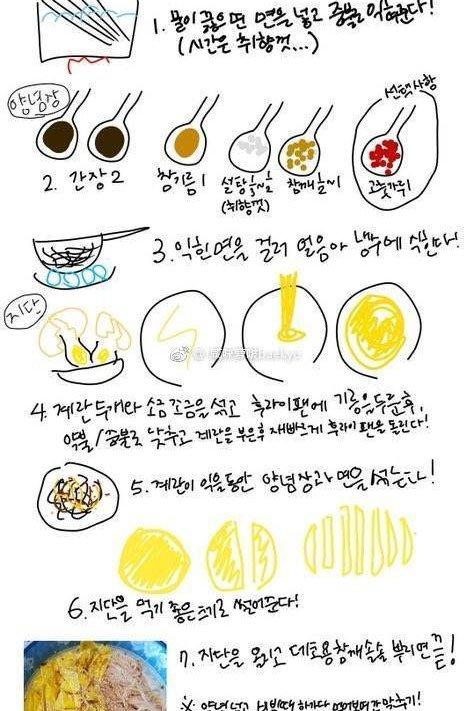 1. 물이 끓으면 면을 넣고 중불로 익혀준다!
(시간은 취향껏...)
양념장
선택사항
2. 간장2
참기름1
설탕
(취향껏)
참깨
고춧가루
3. 익힌면을 걸러 얼음아 냉수에 식힌다!
지단
4. 계란 두개와 소금 조금을 섞고 후라이팬에 기름을 두른후,
약불/중불로 낮추고 계란을 부은후 재빠르게 후라이팬을 돌린다!
5. 계란이 익을동안 양념장과 면을 섞는다!
6. 지단을 먹기 좋은 크기로 썰어준다!
7. 지단을 올리고 데코용 참깨 솔솔 뿌리면 끝!
※ 양념 넣고